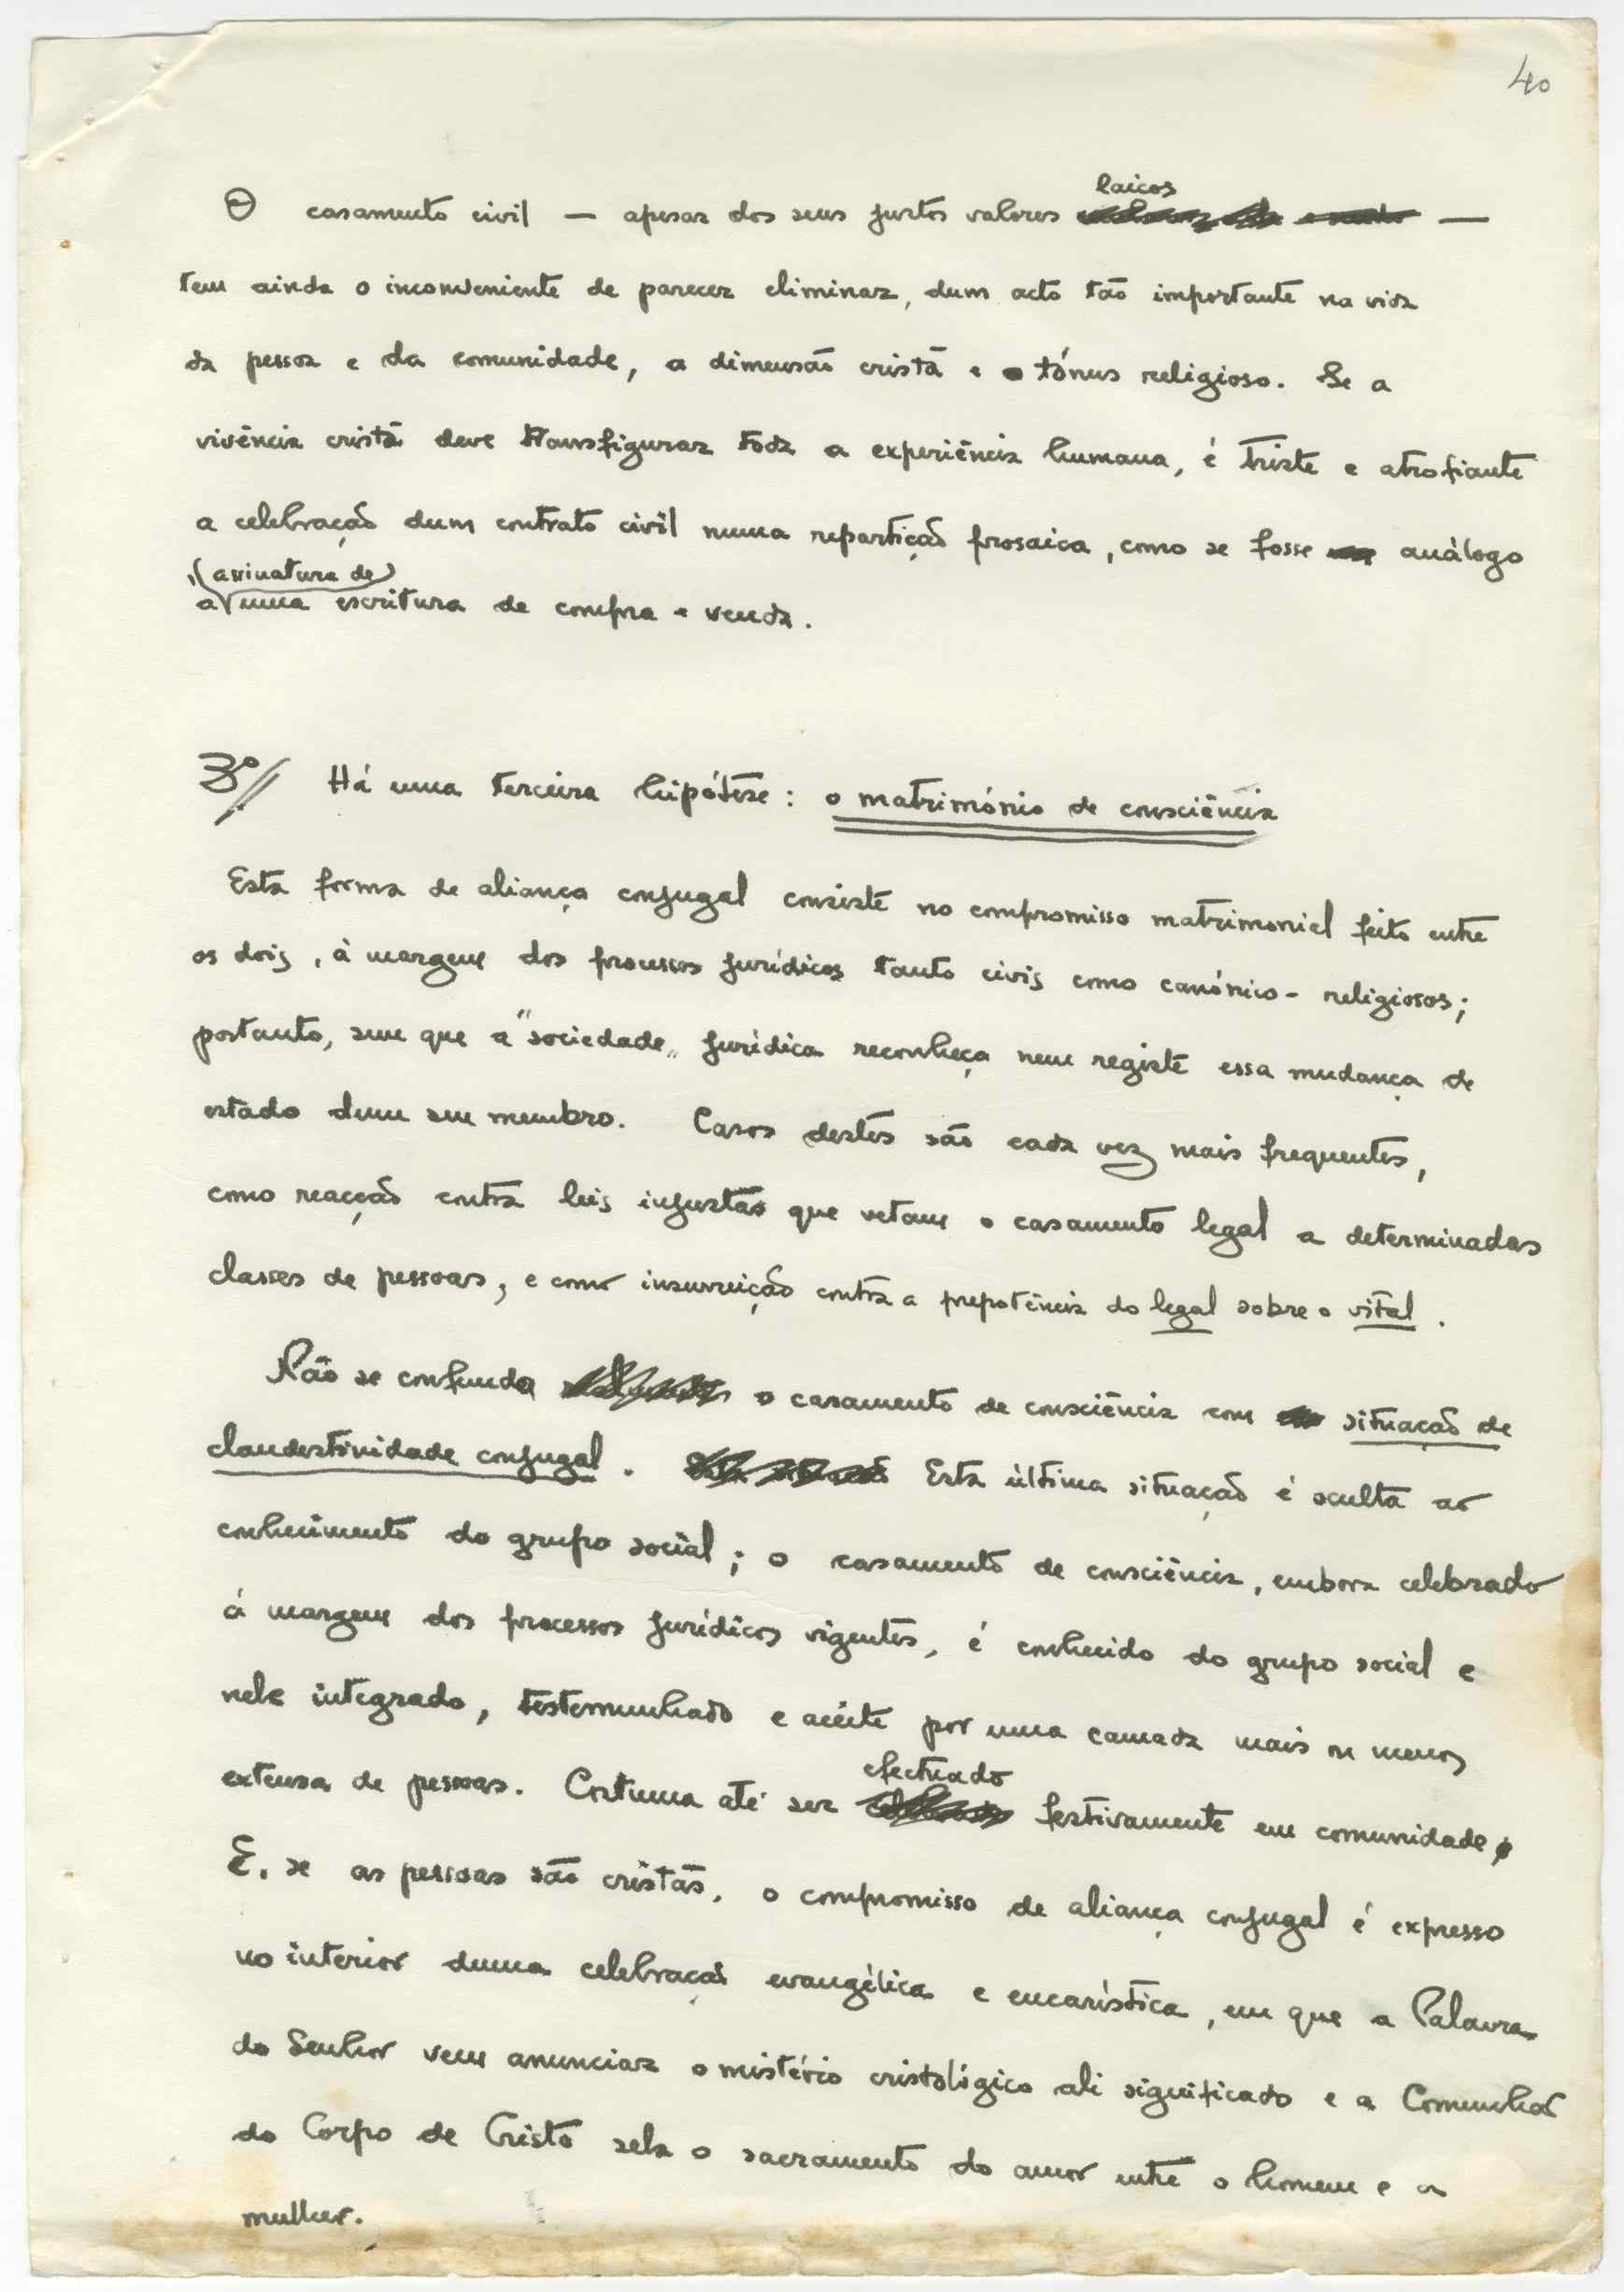 40
laicos
O casamento civil — apesar dos seus justos valores —
tem ainda o inconveniente de parecer eliminar, dum acto tão importante na vida
da pessoa e da comunidade, a dimensão cristã e o tónus religioso. Se a
vivência cristã deve transfigurar toda a experiência humana, é triste e atrofiante
a celebração dum contrato civil numa repartição prosaica, como se fosse análogo
(assinatura de)
a uma escritura de compra e venda.
3º// Há uma terceira hipótese: o matrimónio de consciência
Esta forma de aliança conjugal consiste no compromisso matrimonial feito entre
os dois, à margem dos processos jurídicos tanto civis como canónico-religiosos;
portanto, sem que a "sociedade" jurídica reconheça nem registe essa mudança de
estado dum seu membro. Casos destes são cada vez mais frequentes,
como reacção contra leis injustas que vetam o casamento legal a determinadas
classes de pessoas, e como insurreição contra a prepotência do legal sobre o vital.
Não se confunda o casamento de consciência com situação de
clandestinidade conjugal. Esta última situação é oculta ao
conhecimento do grupo social; o casamento de consciência, embora celebrado
à margem dos processos jurídicos vigentes, é conhecido do grupo social e
nele integrado, testemunhado e aceite por uma camada mais ou menos
efectuado
extensa de pessoas. Costuma até ser festivamente em comunidade.
E, se as pessoas são cristãs, o compromisso de aliança conjugal é expresso
no interior duma celebração evangélica e eucarística, em que a Palavra
do Senhor vem anunciar o mistério cristológico ali significado e a Comunhão
do Corpo de Cristo sela o sacramento do amor entre o homem e a
mulher.